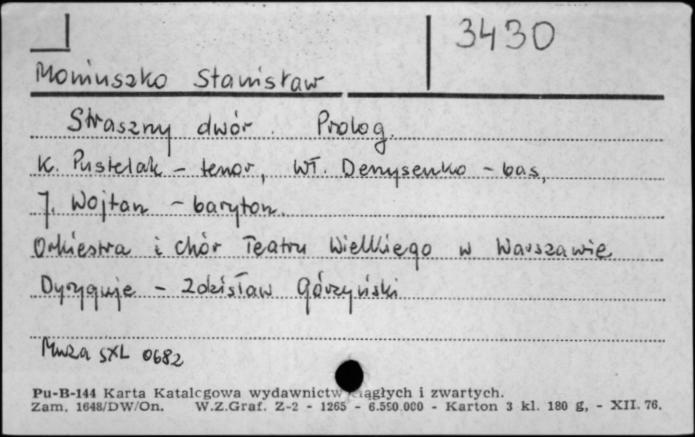 3430
Moniuszko Stanisław
Straszny dwór. Prolog.
K. Pustelak - tenor, Wł. Denysenko - bas,
J. Wojtan - baryton.
Orkiestra i chór Teatru Wielkiego w Warszawie
Dyryguje - Zdzisław Górzyński
Muza SXL 0682
Pu-B-144 Karta Katalogowa wydawnictw ciągłych i zwartych.
Zam. 1648/DW/On. W.Z.Graf. Z-2 - 1265 - 6.550.000 - Karton 3 kl. 180 g, - XII. 76.